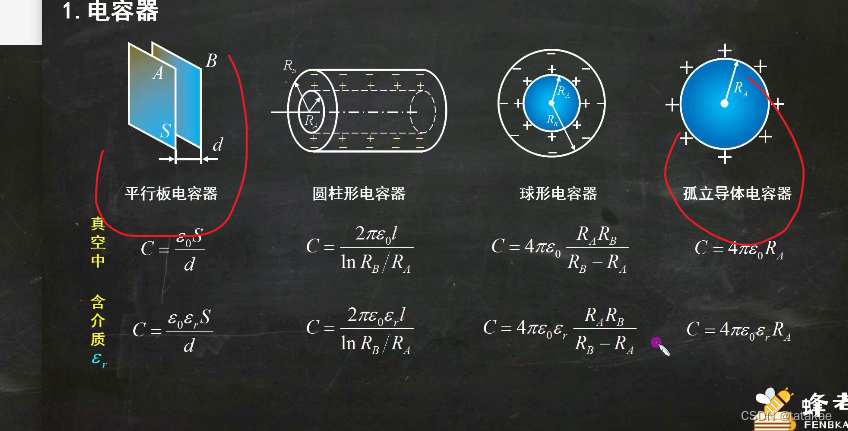 1.电容器
A
B
S
d
R_B
R_A
R_B
R_A
平行板电容器
圆柱形电容器
球形电容器
孤立导体电容器
真空中
C = ε₀S / d
C = 2πε₀l / ln R_B/R_A
C = 4πε₀ R_A R_B / (R_B − R_A)
C = 4πε₀R_A
含介质 εᵣ
C = ε₀εᵣS / d
C = 2πε₀εᵣl / ln R_B/R_A
C = 4πε₀εᵣ R_A R_B / (R_B − R_A)
C = 4πε₀εᵣR_A
蜂考
FENGKA